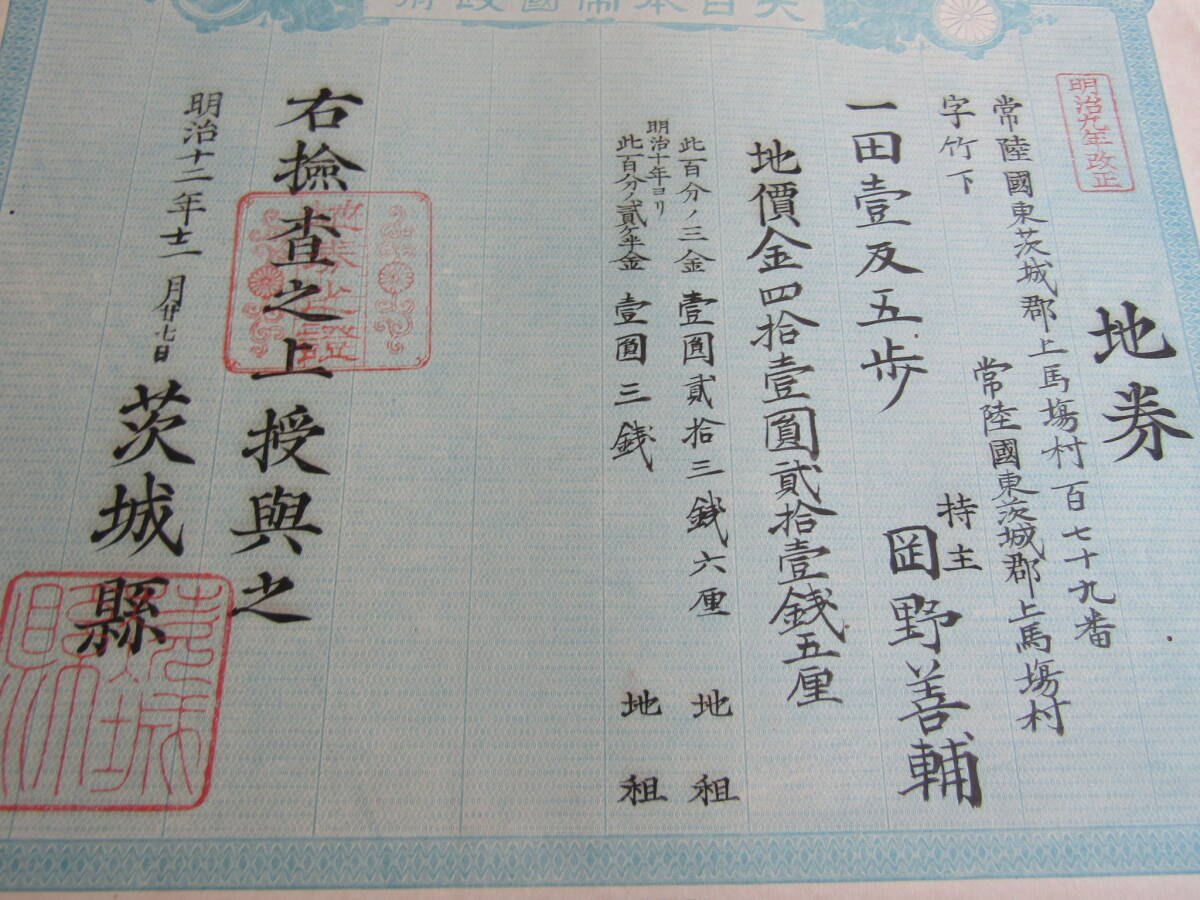 大日本帝國政府
明治九年改正
地券
常陸國東茨城郡上馬塲村百七十九番
字竹下
常陸國東茨城郡上馬塲村
持主 岡野善輔
一田壹反五歩
地價金四拾壹圓貳拾壹錢五厘
此百分ノ三金 壹圓貳拾三錢六厘 地租
明治十年ヨリ
此百分ノ貳ケ半金 壹圓三錢 地租
右撿査之上授與之
明治十二年十二月廿七日
茨城縣